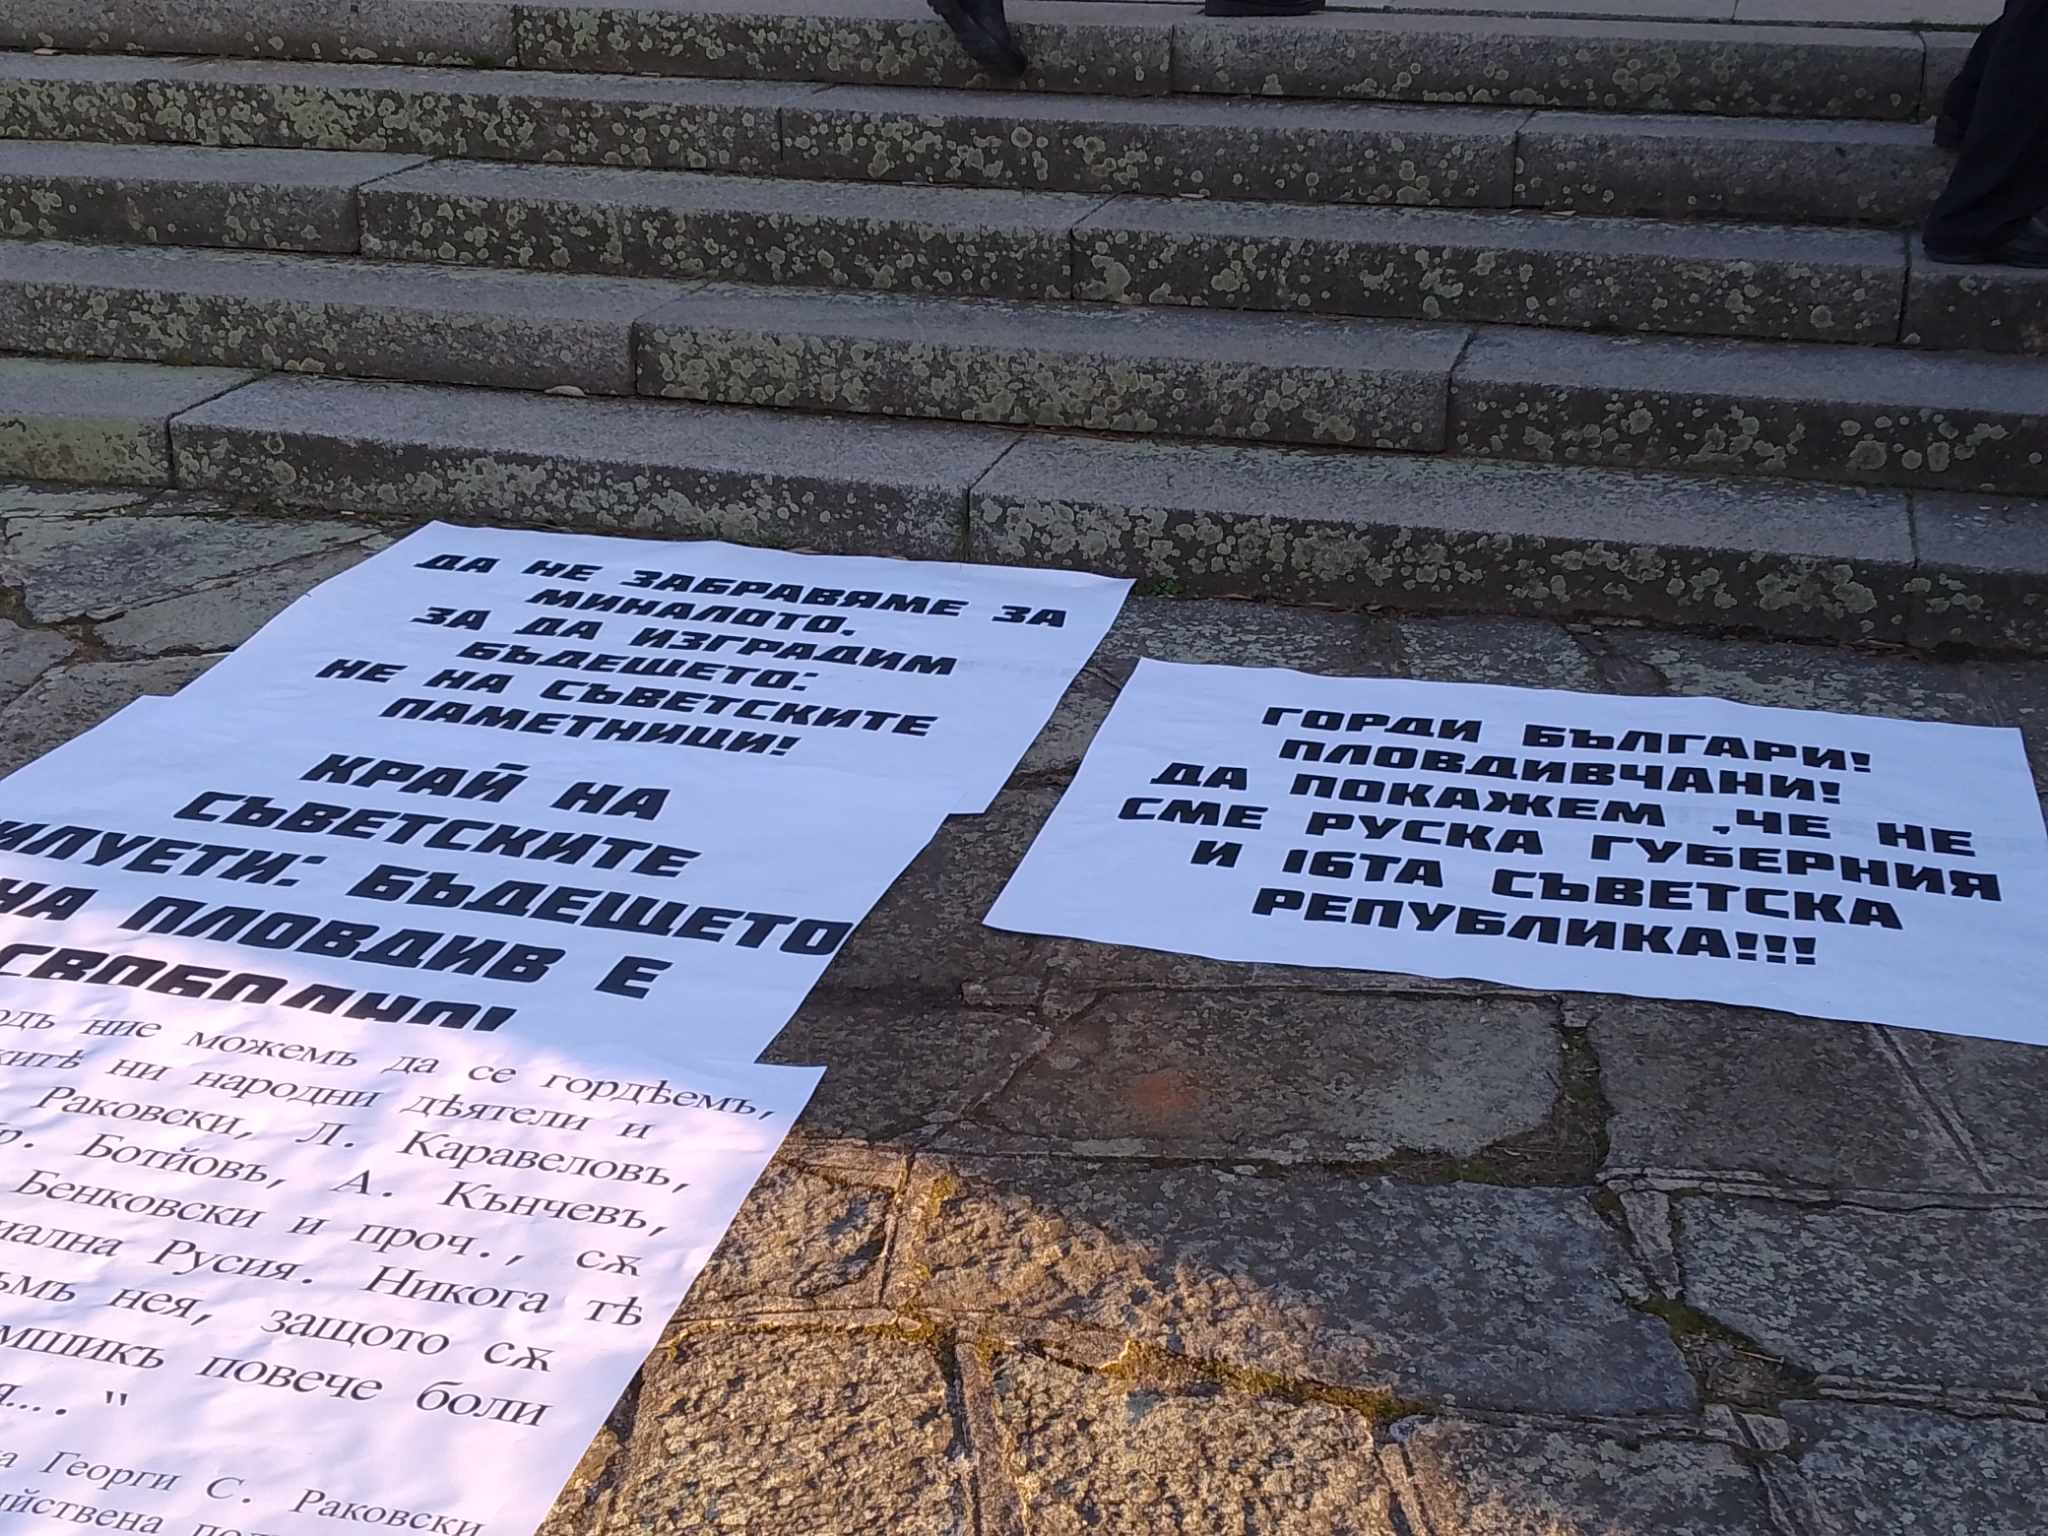 ДА НЕ ЗАБРАВЯМЕ ЗА
МИНАЛОТО.
ЗА ДА ИЗГРАДИМ
БЪДЕЩЕТО:
НЕ НА СЪВЕТСКИТЕ
ПАМЕТНИЦИ!
КРАЙ НА
СЪВЕТСКИТЕ
БЪДЕЩЕТО
НА ПЛОВДИВ Е
СВОБОДНО!
ние можемъ да се гордѣемъ,
ни народни дѣятели и
Раковски, Л. Каравеловъ,
Ботйовъ, А. Кънчевъ,
Бенковски и проч., сѫ
Русия. Никога тѣ
нея, защото сѫ
повече боли
"
Георги С. Раковски
ГОРДИ БЪЛГАРИ!
ПЛОВДИВЧАНИ!
ДА ПОКАЖЕМ ,ЧЕ НЕ
СМЕ РУСКА ГУБЕРНИЯ
И 16ТА СЪВЕТСКА
РЕПУБЛИКА!!!